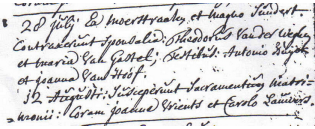 28 July Ex Moerstraaten et magno Sundert
Contraxerunt Sponsalia Theodorus Vander
et maria Van Gastel; testibus Antonio
et Joanna Van Hoof
12 Augusti: Susceperunt Sacramentum matri-
monii: Coram Joanna Vrients et Carolo